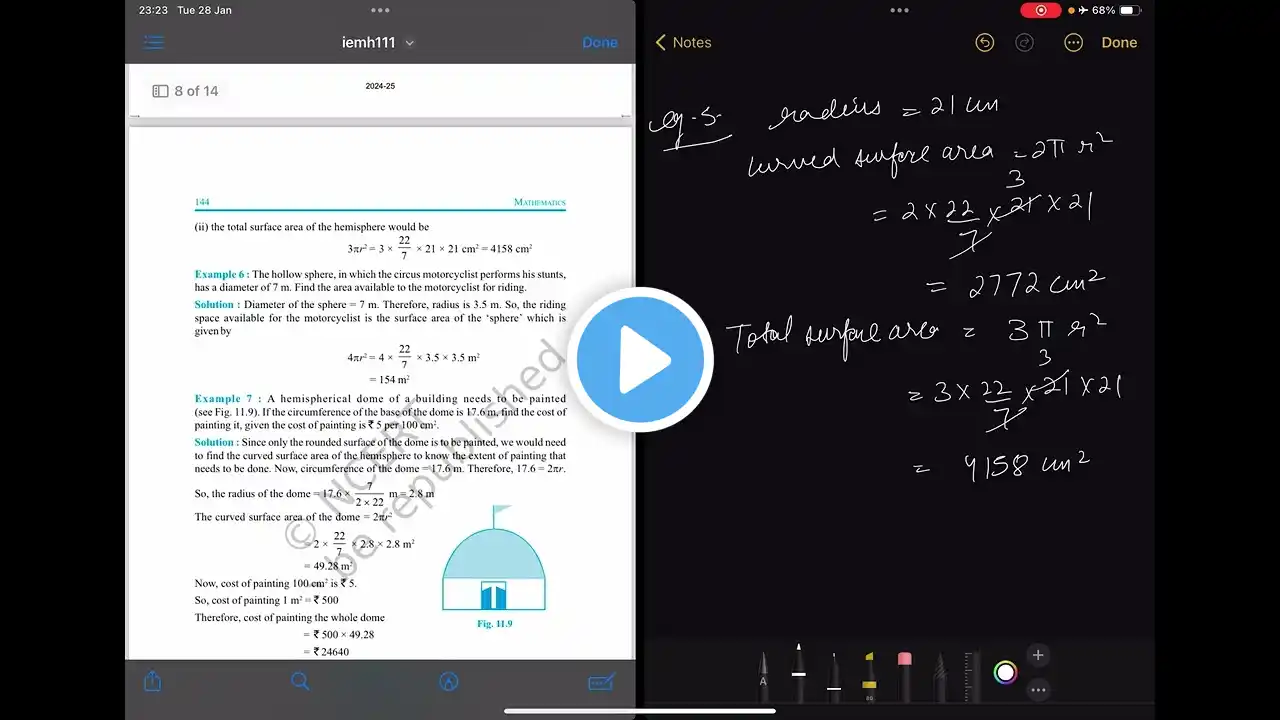 23:23 Tue 28 Jan
68%
iemh111
Done
8 of 14
2024-25
144 MATHEMATICS
(ii) the total surface area of the hemisphere would be
3πr² = 3 × 22/7 × 21 × 21 cm² = 4158 cm²
Example 6 : The hollow sphere, in which the circus motorcyclist performs his stunts,
has a diameter of 7 m. Find the area available to the motorcyclist for riding.
Solution : Diameter of the sphere = 7 m. Therefore, radius is 3.5 m. So, the riding
space available for the motorcyclist is the surface area of the ‘sphere’ which is
given by
4πr² = 4 × 22/7 × 3.5 × 3.5 m²
= 154 m²
Example 7 : A hemispherical dome of a building needs to be painted
(see Fig. 11.9). If the circumference of the base of the dome is 17.6 m, find the cost of
painting it, given the cost of painting is ₹ 5 per 100 cm².
Solution : Since only the rounded surface of the dome is to be painted, we would need
to find the curved surface area of the hemisphere to know the extent of painting that
needs to be done. Now, circumference of the dome = 17.6 m. Therefore, 17.6 = 2πr.
So, the radius of the dome = 17.6 × 7/(2 × 22) m = 2.8 m
The curved surface area of the dome = 2πr²
= 2 × 22/7 × 2.8 × 2.8 m²
= 49.28 m²
Now, cost of painting 100 cm² is ₹ 5.
So, cost of painting 1 m² = ₹ 500
Therefore, cost of painting the whole dome
= ₹ 500 × 49.28
= ₹ 24640
Fig. 11.9
© NCERT
be republished
Notes
Done
eg-5. radius = 21 cm
curved surface area = 2π r²
3
= 2 × 22/7 × 21 × 21
= 2772 cm²
Total surface area = 3 π r²
3
= 3 × 22/7 × 21 × 21
= 4158 cm²
A
80